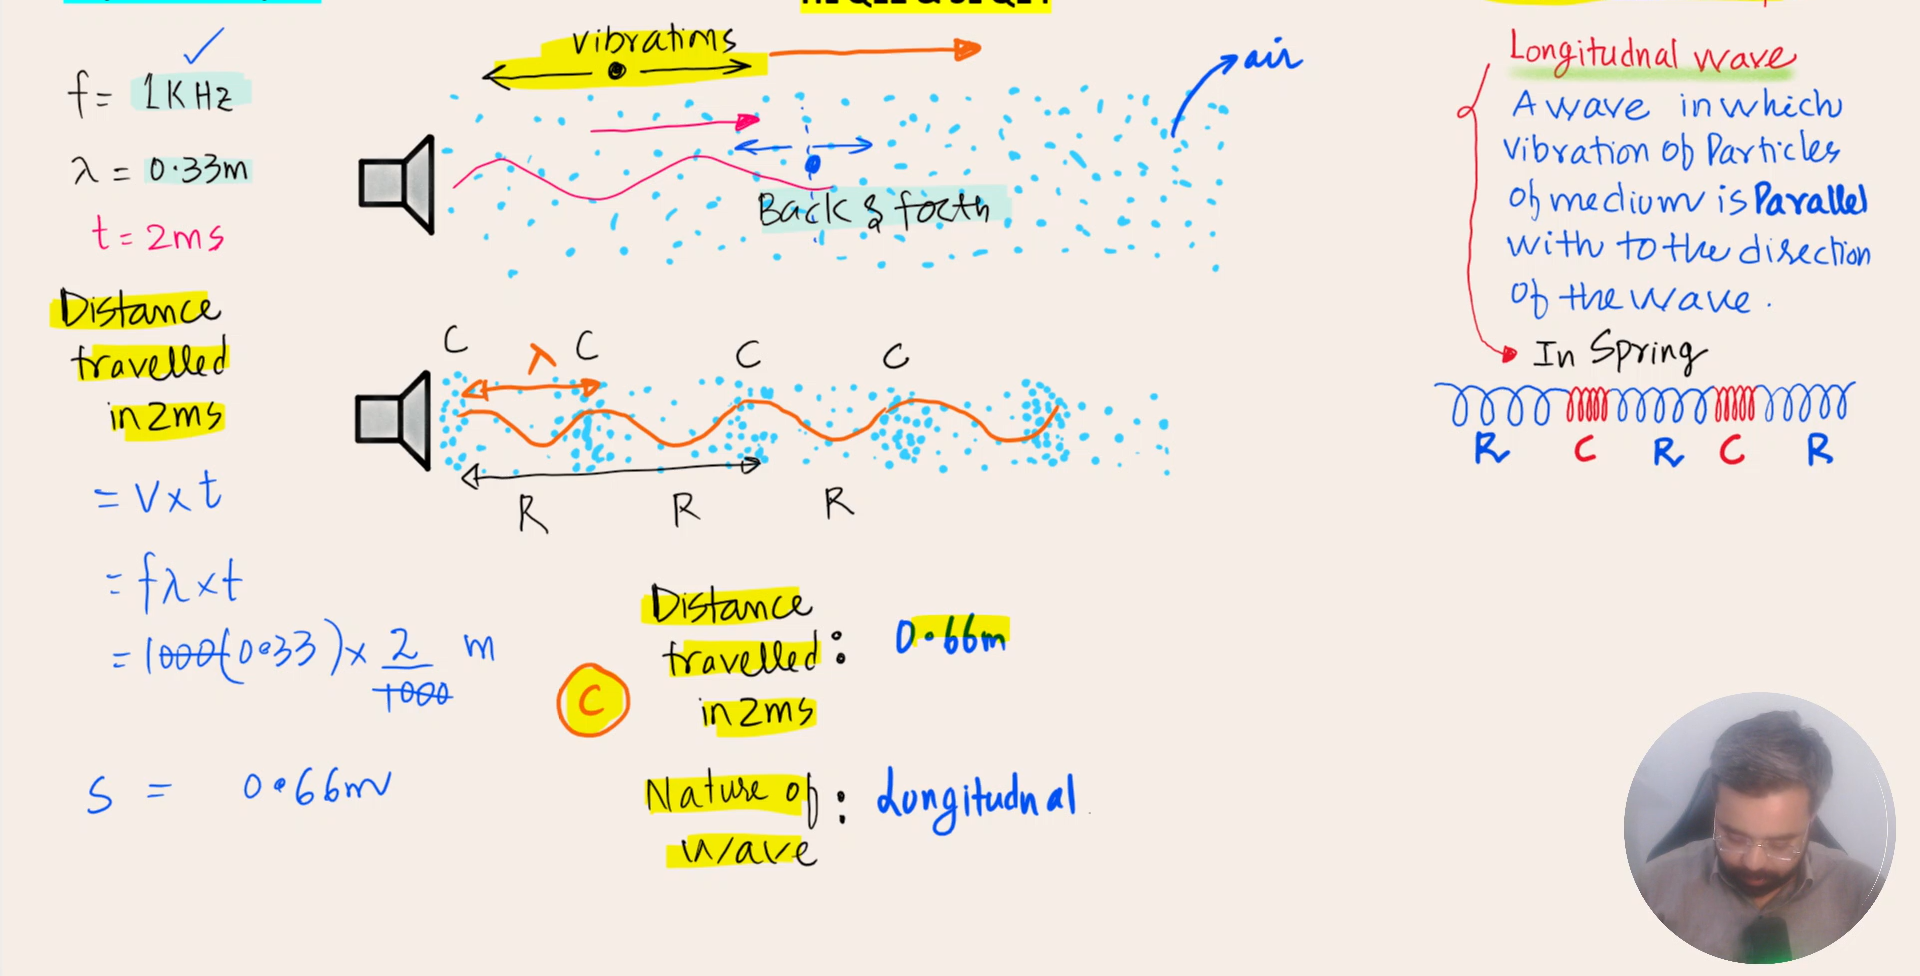 f = 1KHz
λ = 0.33m
t = 2ms
Distance
travelled
in 2ms
= v x t
= fλ x t
= 1000(0.33) x 2/1000 m
S = 0.66m
vibrations
air
Back & forth
C C C C
λ
R R R
C
Distance
travelled : 0.66m
in 2ms
Nature of : Longitudnal
wave
Longitudnal wave
A wave in which
vibration of Particles
of medium is Parallel
with to the direction
of the wave.
In Spring
R C R C R